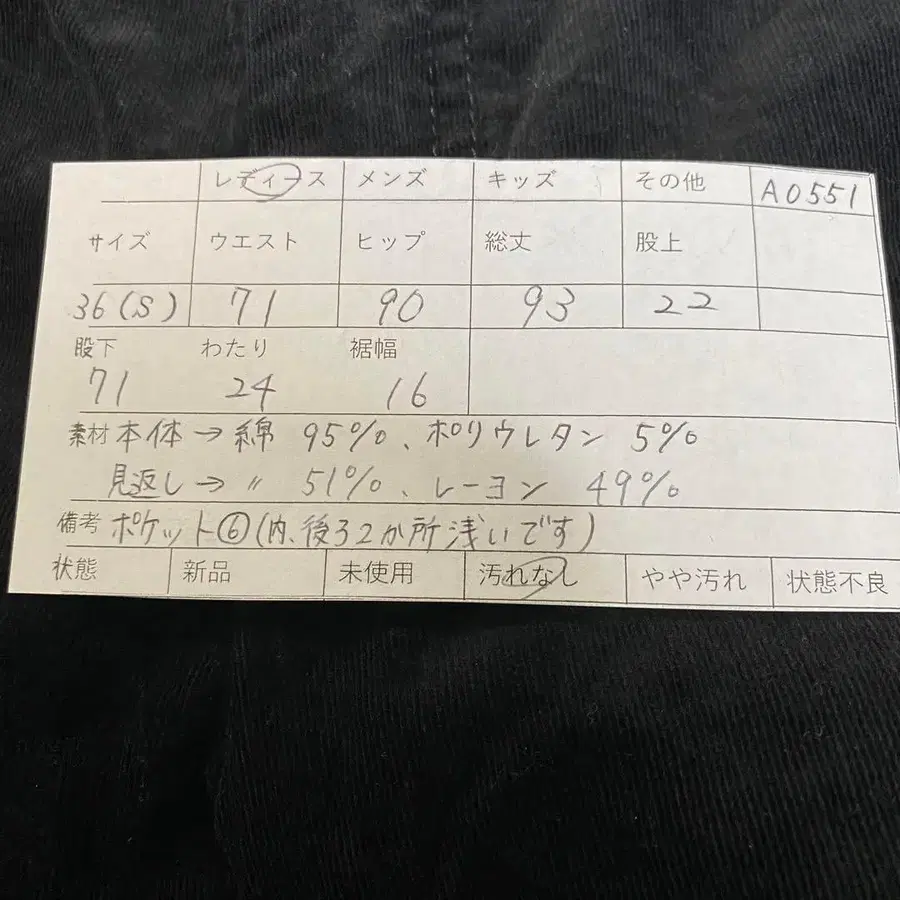 レディース メンズ キッズ その他 A0551
サイズ ウエスト ヒップ 総丈 股上
36(S) 71 90 93 22
股下 わたり 裾幅
71 24 16
素材 本体→綿 95%、ポリウレタン 5%
見返し→〃 51%、レーヨン 49%
備考 ポケット⑥(内、後ろ2か所浅いです)
状態 新品 未使用 汚れなし やや汚れ 状態不良